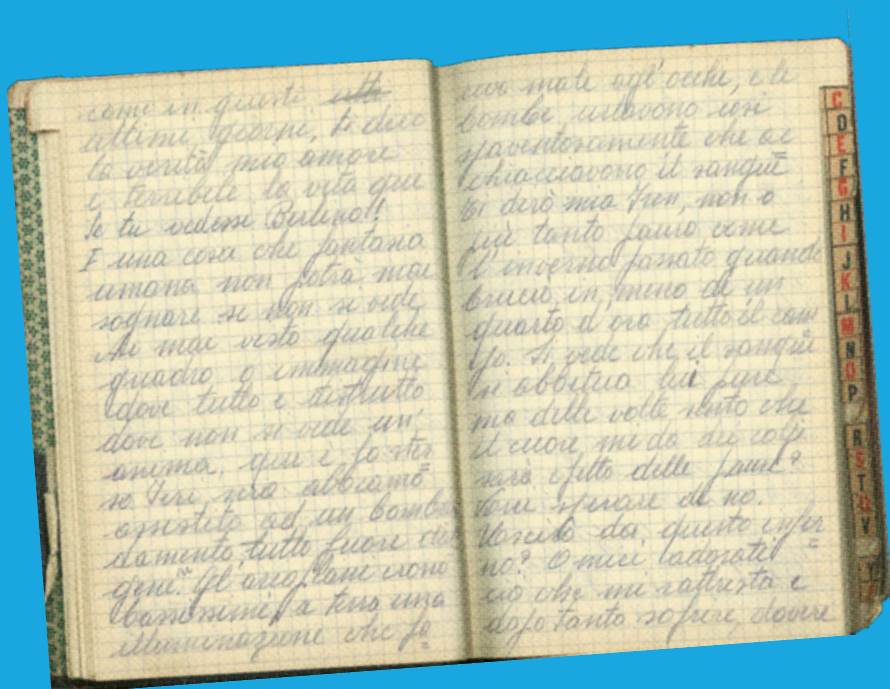 come in questi
ultimi giorni, ti dico
la verità mio amore
è terribile la vita qui
Se tu vedessi Berlino!!
È una cosa che fantasia
umana non potrà mai
sognare se non si vede
ai mai visto qualche
quadro o immagine
dove tutto è distrutto
dove non si vede un'
anima, qui è lo stes
so. Ieri sera abbiamo
assistito ad un bombar
damento, tutto fuori di
geni". Gl'areoplani erono
bassissimi, a terra una
illuminazione che fa
=
ceva male agl'occhi, e le
bombe urlavono così
spaventosamente che ac
chiacciavono il sangue
Ti dirò mia Iren, non o
più tanto paura come
l'inverno passato quando
bruciò in meno di un
quarto d'ora tutto il cam
po. Si vede che il sangue
si abbitua lui pure
ma delle volte sento che
il cuore mi da dei colpi
sarà efetto delle paure?
Voui sperare di no.
Uscirò da questo infer
=
no? O miei adorati
ciò che mi rattrista è
dopo tanto sofrire, dovere
C
D
E
F
G
H
I
J
K
L
M
N
O
P
R
S
T
U
V
Y
Z